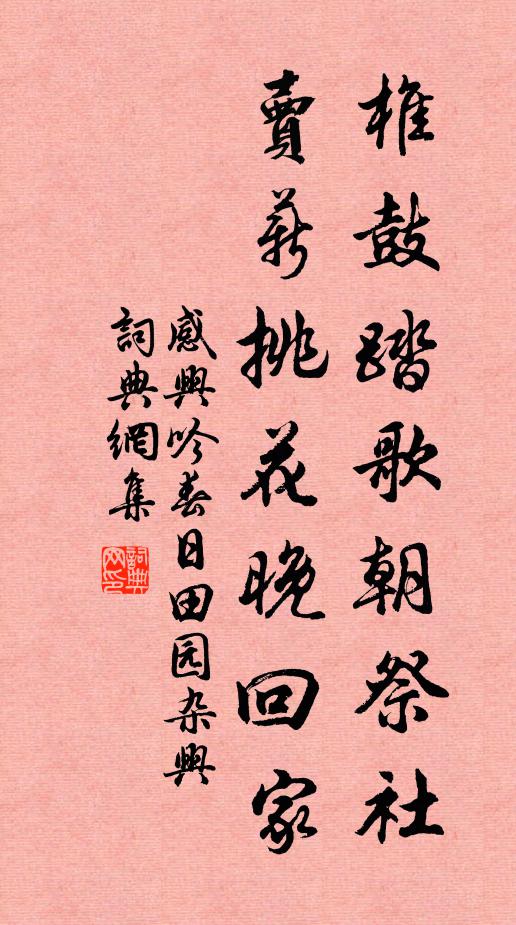 椎鼓踏歌朝祭社
賣薪挑花晚回家
感興吟春日田园杂興
詞典網集
詞典網印